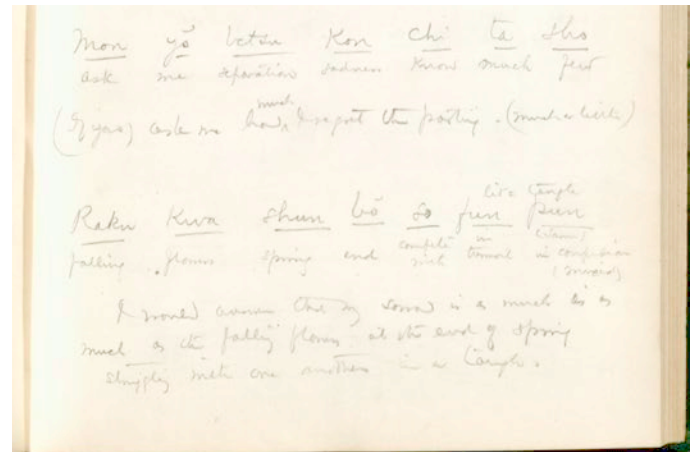 Mon yō betsu Kon chi ta sho
ask me separation sadness know much few
much
(If you) ask me how, I regret the parting. (much or little)
like temple
Raku Kwa shun bō so fun pun
falling flowers spring end compete with in turmoil in confusion
I would answer that my sorrow is as much as is
much as the falling flowers at the end of spring
struggling with one another in a tangle.